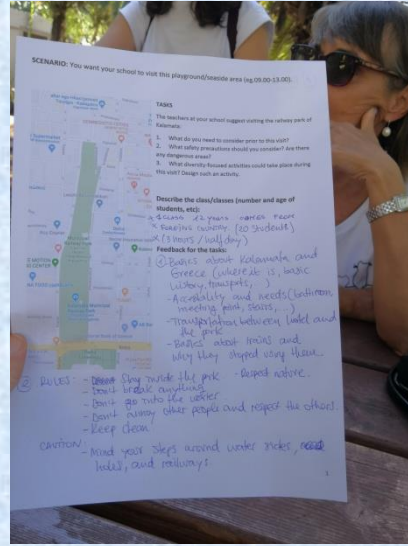 SCENARIO: You want your school to visit this playground/seaside area (eg.09.00-13.00).
TASKS
The teachers at your school suggest visiting the railway park of
Kalamata.
1. What do you need to consider prior to this visit?
2. What safety precautions should you consider? Are there
any dangerous areas?
3. What diversity-focused activities could take place during
this visit? Design such an activity.
Describe the class/classes (number and age of
students, etc):
12 years
(20 students)
(3 hours / half day)
Feedback for the tasks:
① Basics about Kalamata and
Greece (where it is, basic
history, transports, )
and needs (bathroom,
meeting point, stairs, ...)
- Transportation between hotel and
the park
- Basics about trains and
why they stoped using them.
② RULES: - Stay inside the park - Respect nature.
- Don't break anything
- Don't go into the water
- Don't annoy other people and respect the others.
- Keep clean
CAUTION:
- Mind your steps around water sides,
holes, and railways.